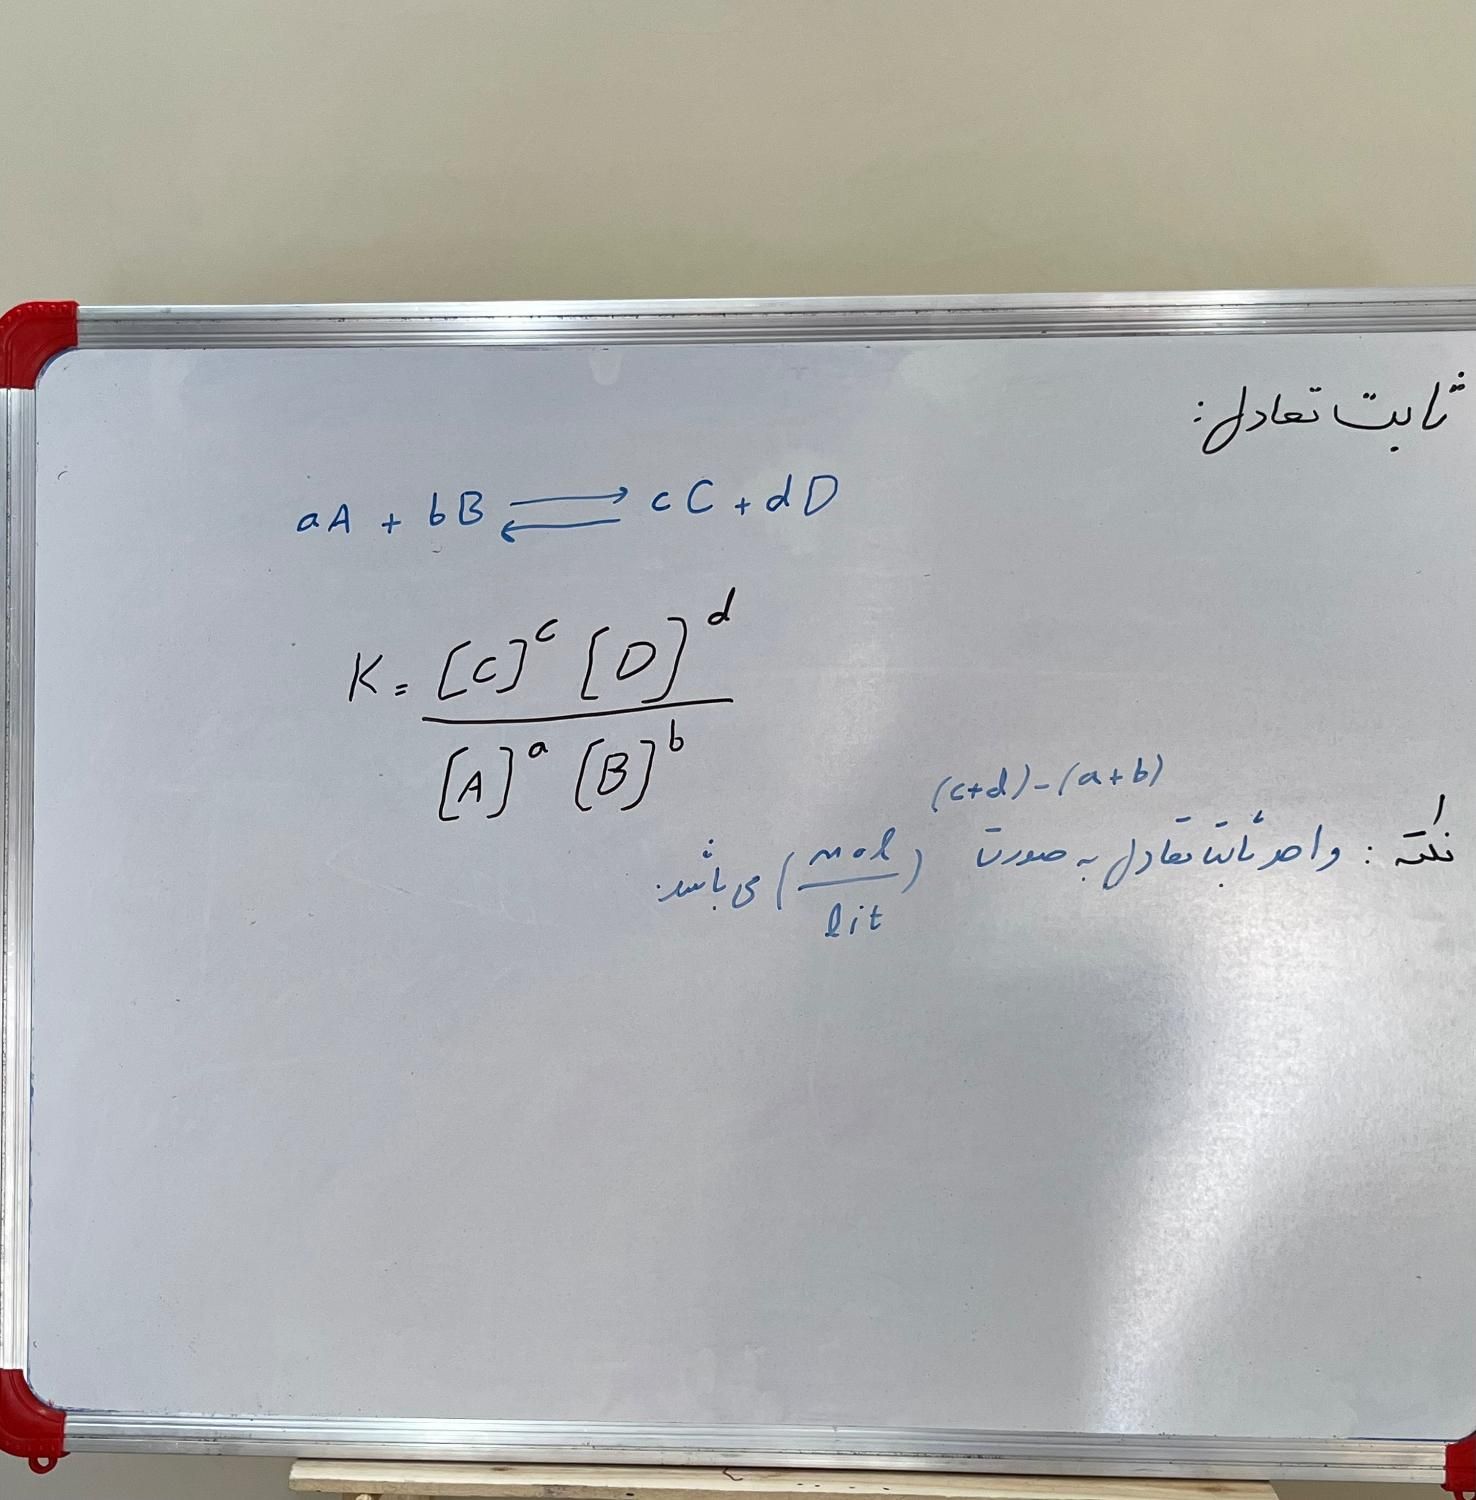 ثابت تعادل:
aA + bB ⇌ cC + dD
K = [C]^c [D]^d / [A]^a [B]^b
نکته: واحد ثابت تعادل به صورت (mol/lit)^(c+d)-(a+b) می باشد.